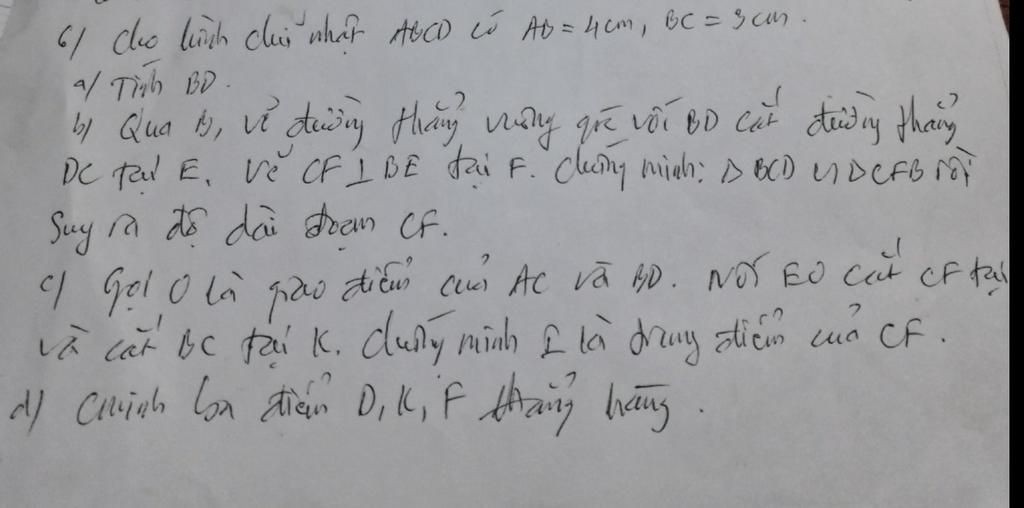 6/ Cho hình chữ nhật ABCD có AB = 4cm, BC = 3cm.
a/ Tính BD.
b) Qua B, vẽ đường thẳng vuông góc với BD cắt đường thẳng
DC tại E. Vẽ CF ⊥ BE tại F. Chứng minh: Δ BCD ∽ Δ CFB rồi
suy ra độ dài đoạn CF.
c) Gọi O là giao điểm của AC và BD. Nối EO cắt CF tại
và cắt BC tại K. Chứng minh I là trung điểm của CF.
d) Cminh ba điểm D, K, F thẳng hàng.